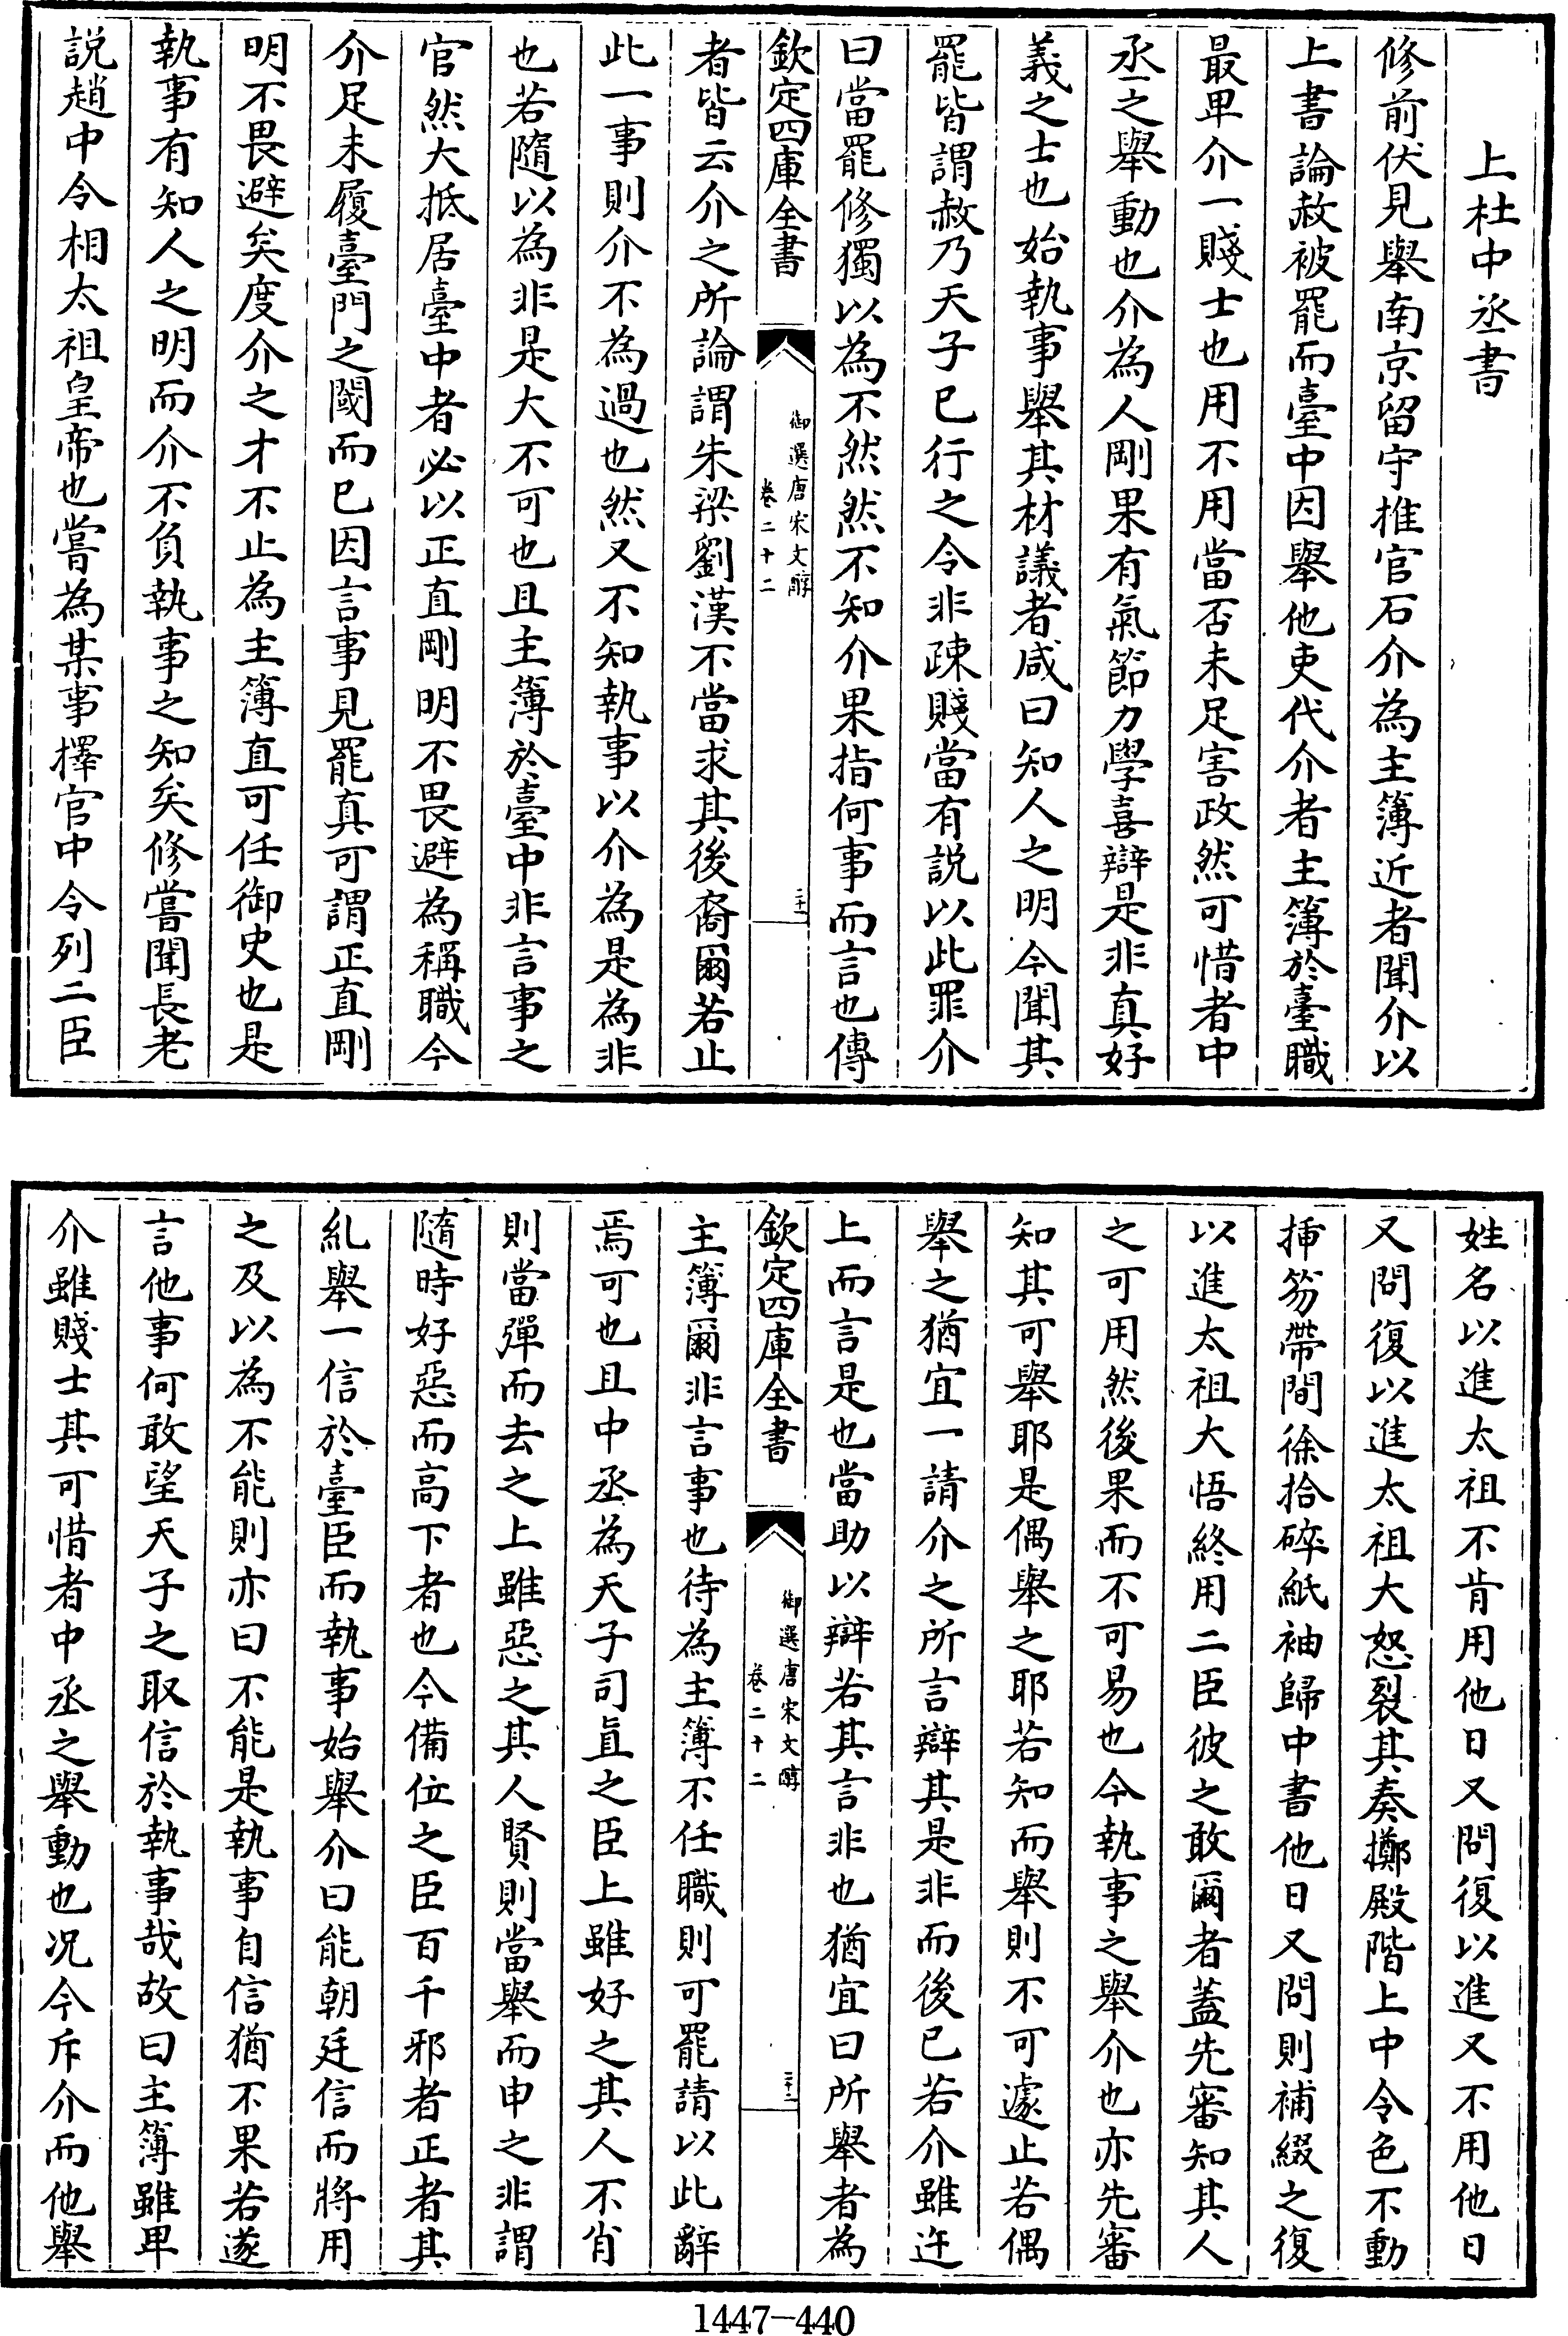 上杜中丞書
修前伏見舉南京留守推官石介為主簿近者聞介以
上書論赦被罷而臺中因舉他吏代介者主簿於臺職
最卑介一賤士也用不用當否未足害政然可惜者中
丞之舉動也介為人剛果有氣節力學喜辯是非真好
義之士也始執事舉其材議者咸曰知人之明今聞其
罷皆謂赦乃天子已行之令非疎賤當有説以此罪介
曰當罷修獨以為不然然不知介果指何事而言也傳
欽定四庫全書
御選唐宋文醇
卷二十二
二十一
者皆云介之所論謂朱梁劉漢不當求其後裔爾若止
此一事則介不為過也然又不知執事以介為是為非
也若隨以為非是大不可也且主簿於臺中非言事之
官然大抵居臺中者必以正直剛明不畏避為稱職今
介足未履臺門之閾而已因言事見罷真可謂正直剛
明不畏避矣度介之才不止為主簿直可任御史也是
執事有知人之明而介不負執事之知矣修嘗聞長老
説趙中令相太祖皇帝也嘗為某事擇官中令列二臣
姓名以進太祖不肯用他日又問復以進又不用他日
又問復以進太祖大怒裂其奏擲殿階上中令色不動
挿笏帶間徐拾碎紙袖歸中書他日又問則補綴之復
以進太祖大悟終用二臣彼之敢爾者蓋先審知其人
之可用然後果而不可易也今執事之舉介也亦先審
知其可舉耶是偶舉之耶若知而舉則不可遽止若偶
舉之猶宜一請介之所言辯其是非而後已若介雖迕
上而言是也當助以辯若其言非也猶宜曰所舉者為
欽定四庫全書
御選唐宋文醇
卷二十二
二十二
主簿爾非言事也待為主簿不任職則可罷請以此辭
焉可也且中丞為天子司直之臣上雖好之其人不肖
則當彈而去之上雖惡之其人賢則當舉而申之非謂
隨時好惡而高下者也今備位之臣百千邪者正者其
糺舉一信於臺臣而執事始舉介曰能朝廷信而將用
之及以為不能則亦曰不能是執事自信猶不果若遂
言他事何敢望天子之取信於執事哉故曰主簿雖卑
介雖賤士其可惜者中丞之舉動也况今斥介而他舉
1447-440